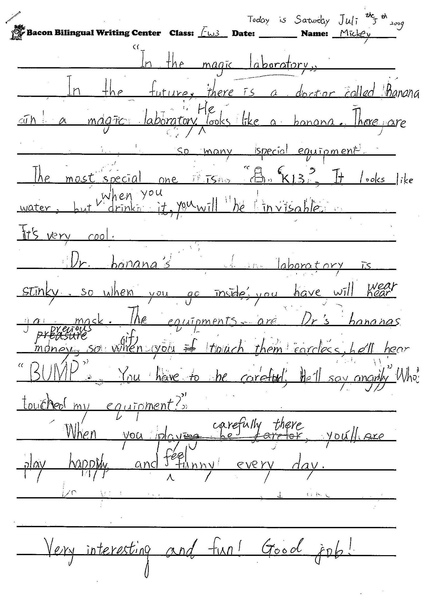 Today is Saturday Juli the 5th 2009
Bacon Bilingual Writing Center Class: EW3 Date: Name: Mickey
"In the magic laboratory"
In the future, there is a doctor called Banana
in a magic laboratory. He looks like a banana. There are
so many special equipment.
The most special one is "K13", It looks like
water, but when you drink it, you will be invisable.
It's very cool.
Dr. banana's laboratory is
stinky. so when you go inside, you have will wear
gas mask. The equipments are Dr's bananas
precious
money, so when you if touch them carcless, he'll hear
"BUMP". You have to be careful, he'll say angrily "Who
touched my equipment?"
carefully there
When you play be , you'll are
play happy and feel funny every day.
Very interesting and fun! Good job!